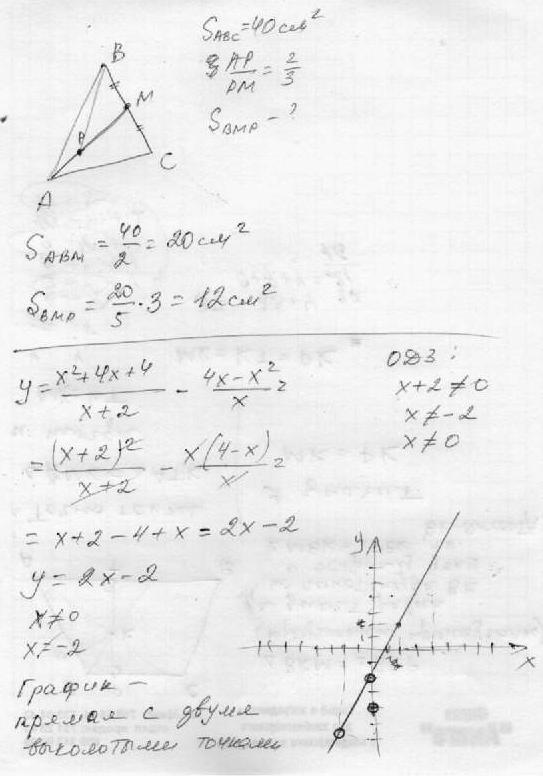 S_ABC = 40 см²
AP/PM = 2/3
S_BMP - ?
B
M
P
C
A
S_ABM = 40/2 = 20 см²
S_BMP = 20/5 · 3 = 12 см²
y = (x² + 4x + 4)/(x + 2) - (4x - x²)/x =
ОДЗ:
x + 2 ≠ 0
x ≠ -2
x ≠ 0
= (x + 2)²/(x + 2) - x(4 - x)/x =
= x + 2 - 4 + x = 2x - 2
y = 2x - 2
x ≠ 0
x ≠ -2
График -
прямая с двумя
выколотыми точками
y
x